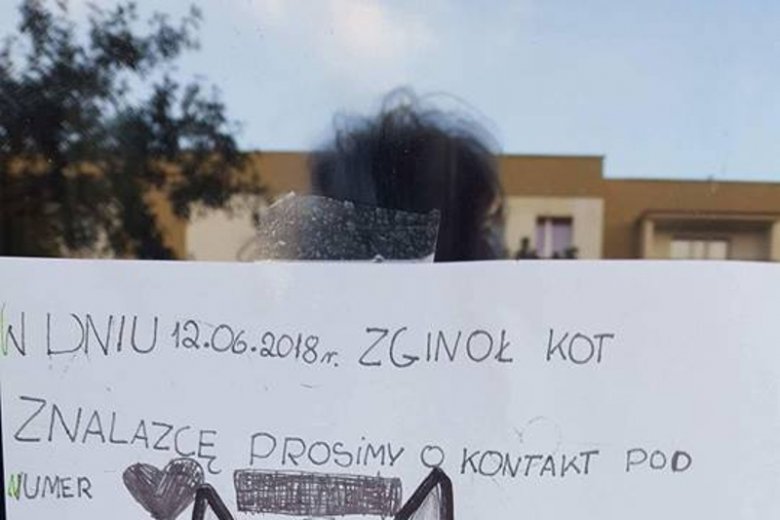 W DNIU 12.06.2018r. ZGINOŁ KOT
ZNALAZCĘ PROSIMY O KONTAKT POD
NUMER